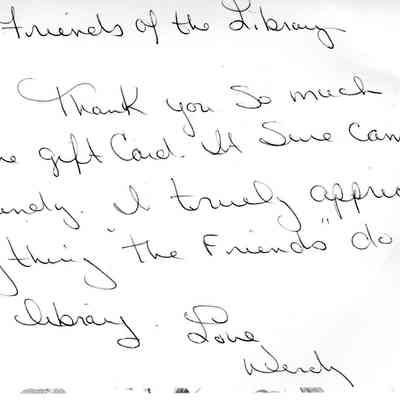 Friends of the Library
Thank you so much
gift Card. It Sure cam
I truly apprec
thing "the Friends" do
library. Love,
Wendy